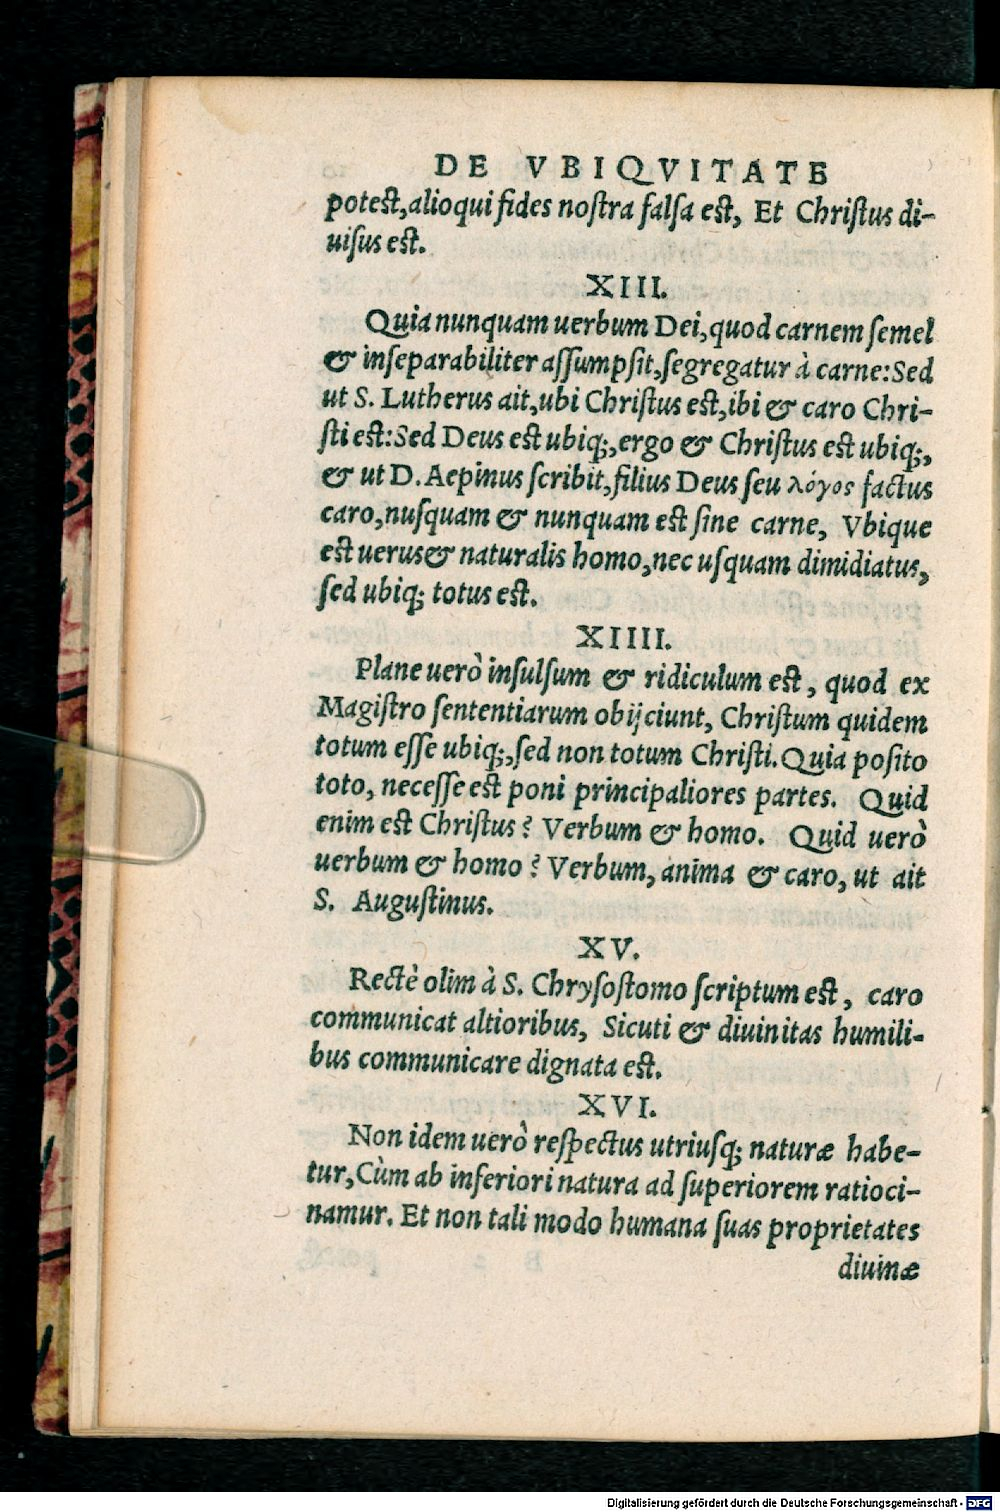 DE VBIQVITATE
potest, alioqui fides nostra falsa est, Et Christus di-
uisus est.
XIII.
Quia nunquam uerbum Dei, quod carnem semel
& inseparabiliter assumpsit, segregatur à carne: Sed
ut S. Lutherus ait, ubi Christus est, ibi & caro Chri-
sti est: Sed Deus est ubiq;, ergo & Christus est ubiq;,
& ut D. Aepinus scribit, filius Deus seu λόγος factus
caro, nusquam & nunquam est sine carne, Vbique
est uerus & naturalis homo, nec usquam dimidiatus,
sed ubiq; totus est.
XIIII.
Plane uerò insulsum & ridiculum est, quod ex
Magistro sententiarum obijciunt, Christum quidem
totum esse ubiq;, sed non totum Christi. Quia posito
toto, necesse est poni principaliores partes. Quid
enim est Christus? Verbum & homo. Quid uerò
uerbum & homo? Verbum, anima & caro, ut ait
S. Augustinus.
XV.
Rectè olim à S. Chrysostomo scriptum est, caro
communicat altioribus, Sicuti & diuinitas humili-
bus communicare dignata est.
XVI.
Non idem uerò respectus utriusq; naturæ habe-
tur, Cùm ab inferiori natura ad superiorem ratioci-
namur. Et non tali modo humana suas proprietates
diuinæ
Digitalisierung gefördert durch die Deutsche Forschungsgemeinschaft - DFG